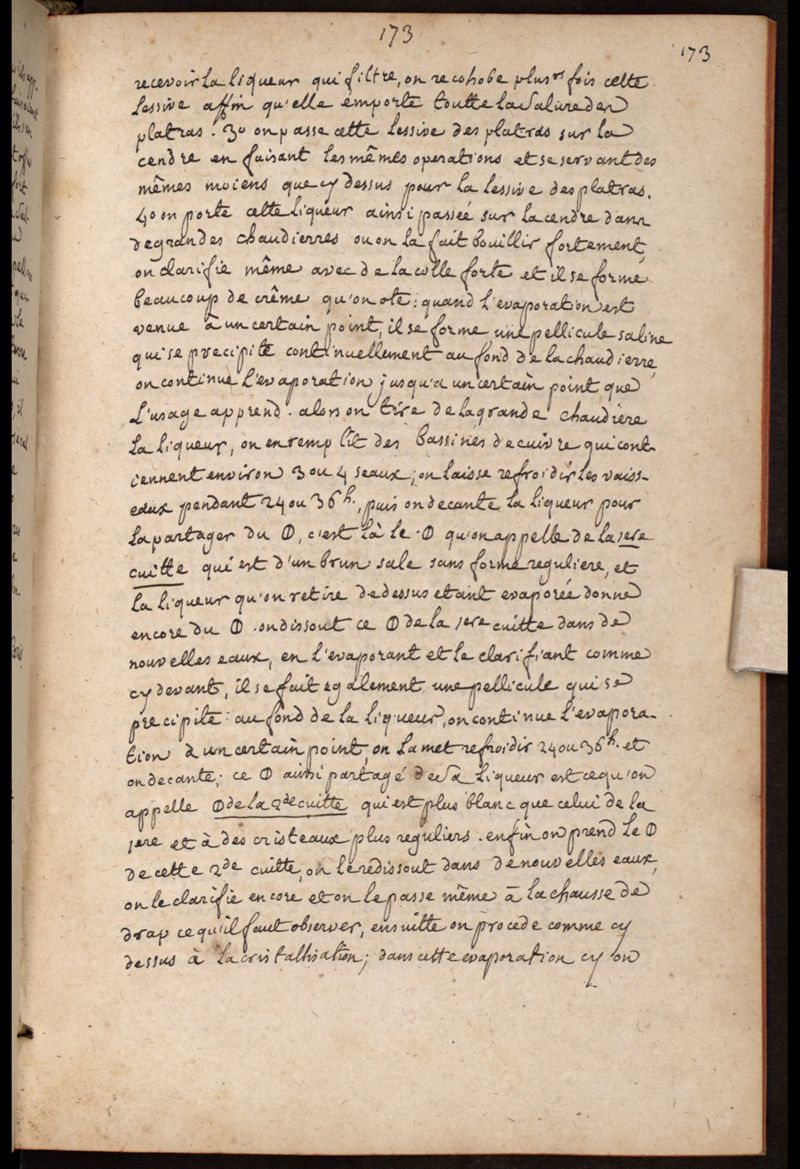 173
173
recevoir la liqueur qui filtre, on recohobe plusrs fois cette
Lessive affin qu'elle emporte toutte la salure des
platras. 3o on passe cette Lessive des platras sur la
cendre en faisant les mêmes operations et se servant des
mêmes moiens que cy dessus pour la lessive des platras.
4o on porte cette Liqueur ainsi passée sur la cendre dans
de grandes chaudierres ou on la fait bouillir fortement,
on clarifie même avec de la colle forte et il se forme
beaucoup de crême qu'on ote: quand l'evaporation est
venue à un certain point, il se forme une pellicule saline
qui se precipite continuellement au fond de la chaudierre,
on continue L'evaporation jusqu'a un certain point que
L'usage apprend. alors on tire de la grande chaudiere
La liqueur, on en remplit des bassines de cuivre qui cont-
iennent environ 3 ou 4 seaux; on laisse refroidir les vaiss-
eaux pendant 24 ou 36h., puis on decante la liqueur pour
la partager du 🜕, c'est là le 🜕 qu'on appelle de la 1ere
cuitte qui est d'un brun sale sans forme reguliere, et
la liqueur qu'on retire de dessus etant evaporée donne
encore du 🜕. on dissout ce 🜕 de la 1ere cuitte dans de
nouvelles eaux, en l'evaporant et le clarifiant comme
cy devant, il se fait egalement une pellicule qui se
precipite au fond de la liqueur, on continue l'evapora-
tion à un certain point, on la met refroidir 24 ou 36h. et
on decante; ce 🜕 ainsi partagé de sa Liqueur est ce qu'on
appelle 🜕 de la 2de cuitte qui est plus blanc que celui de la
1ere et à des cristeaux plus reguliers. enfin on prend le 🜕
de cette 2de cuitte, on le redissout dans de nouvelles eaux,
on le clarifie encore et on le passe même à la chausse de
drap ce qu'il faut observer, ensuitte on procede comme cy
dessus à la cristallisation; dans cette evaporation cy on